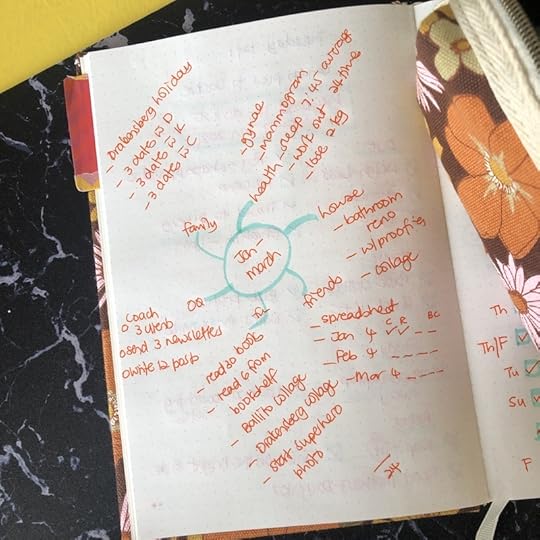 Jan -
march
family
- Drakensberg holiday
- 3 dates ☑ D
- 3 dates ☑ K
- 3 dates ☑ C
health
- gynae
- mammogram
- sleep 7:45 average
- work out: 24 time
- lose 2 kg
house
- bathroom
reno
- w/proofing
- collage
friends
- spreadsheet
C R BC
- Jan 4 ✓ ✓ _ _
- Feb 4 _ _ _ _
- Mar 4 _ _ _ _
fun
- read 20 books
- read 6 from
bookshelf
- Ballito collage
- Drakensberg collage
- start superhero
photo
/24
OQ
o coach
3 users
o send 3 newsletters
o write 12 posts
Th
Th/F
Tu
Su
F